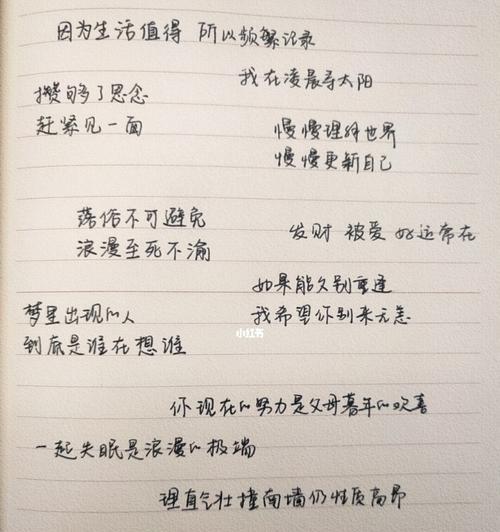 因为生活值得 所以频繁记录
我在凌晨寻太阳
攒够了思念
赶紧见一面
慢慢理解世界
慢慢更新自己
落俗不可避免
浪漫至死不渝
发财 被爱 好运常在
如果能久别重逢
我希望你别来无恙
小红书
梦里出现的人
到底是谁在想谁
你现在的努力是父母暮年的欢喜
一起失眠是浪漫的极端
理直气壮 撞南墙仍性质高昂